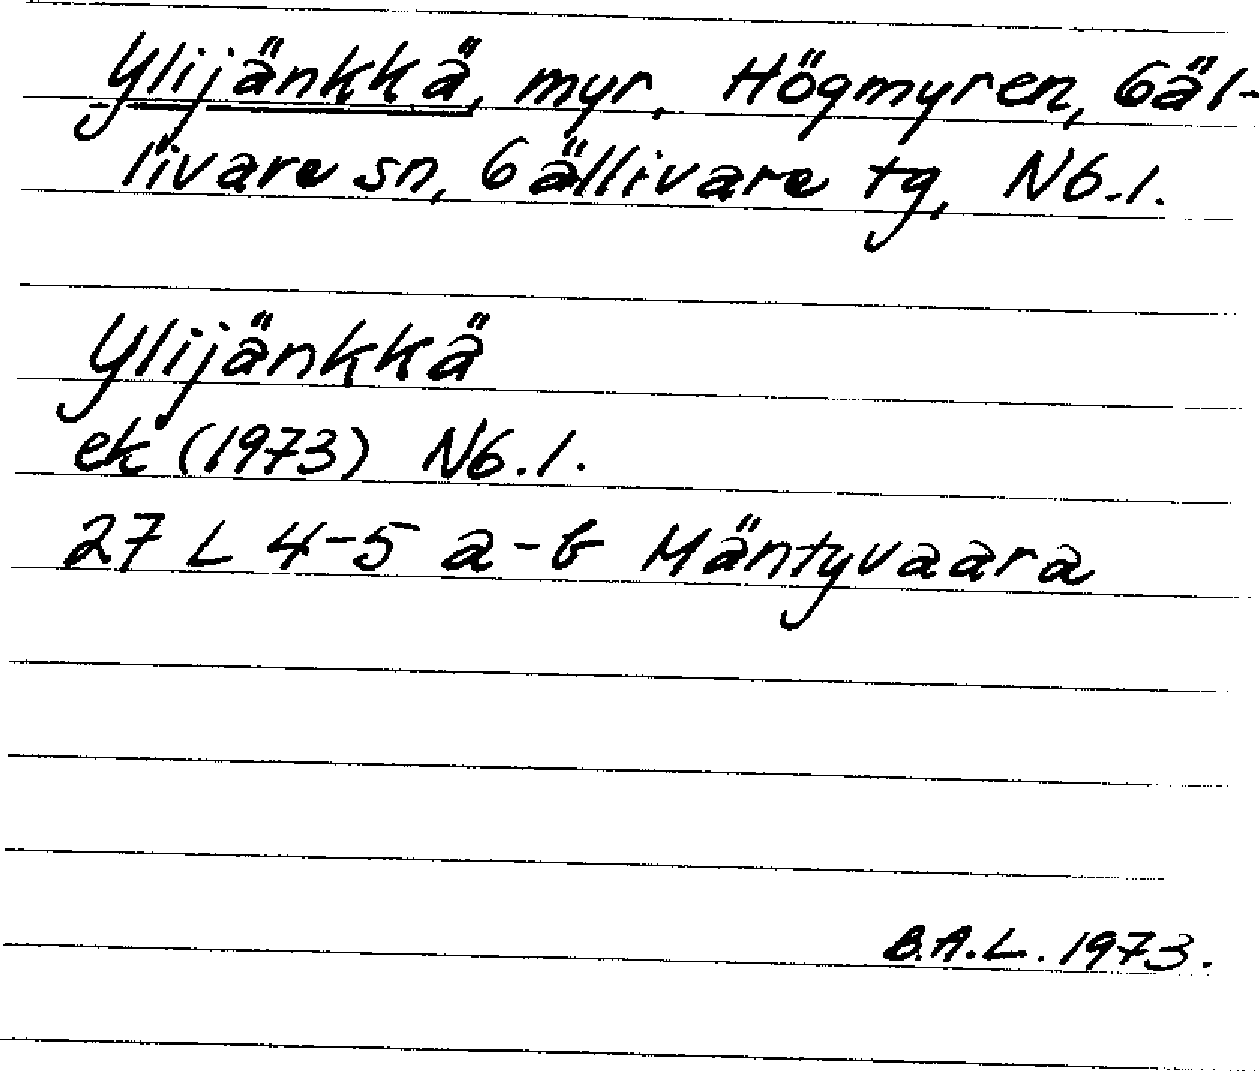 Ylijänkkä, myr, Högmyren, Gäl-
livare sn, Gällivare tg, Nb.l.
Ylijänkkä
ek (1973) Nb.l.
27 L 4-5 a-b Mäntyvaara
B.A.L. 1973.